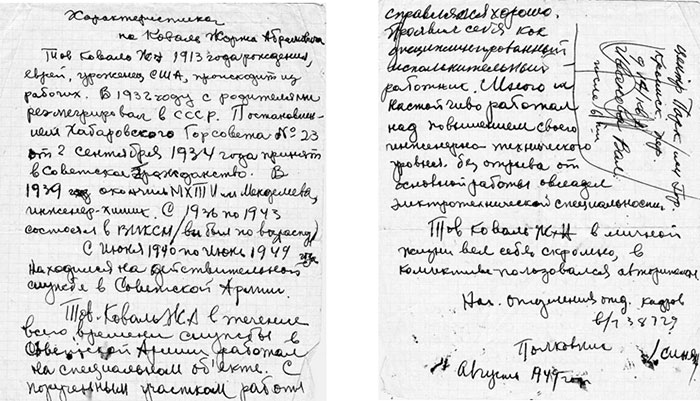 Характеристика
на Коваля Жоржа Абрамовича
Тов Коваль ЖА 1913 года рождения,
еврей, уроженец США, происходит из
рабочих. В 1932 году с родителями
реэмигрировал в СССР. Постановле-
нием Хабаровского Горсовета № 23
от 2 сентября 1934 года принят
в Советское гражданство. В
1939 году окончил МХТИ им Менделеева,
инженер-химик. С 1936 по 1943
состоял в ВЛКСМ /выбыл по возрасту/
С Июня 1940 по Июнь 1949 года
находился на действительной
службе в Советской Армии.
Тов. Коваль ЖА в течение
всего времени службы в
Советской Армии работал
на специальном об'екте. С
порученным участком работы
справлялся хорошо.
Проявил себя как
дисциплинированный
исполнительный
работник. Много и
настойчиво работал
над повышением своего
инженерно-технического
уровня. Без отрыва от
основной работы овладел
электротехнической специальностью.
Тов Коваль ЖА в личной
жизни вел себя скромно, в
коллективе пользовался авторитетом
Нач. отделения отд. кадров
в/ч 38729
Полковник
Август 1949 год
Центр Парк им Гор.
Иванова Вал.